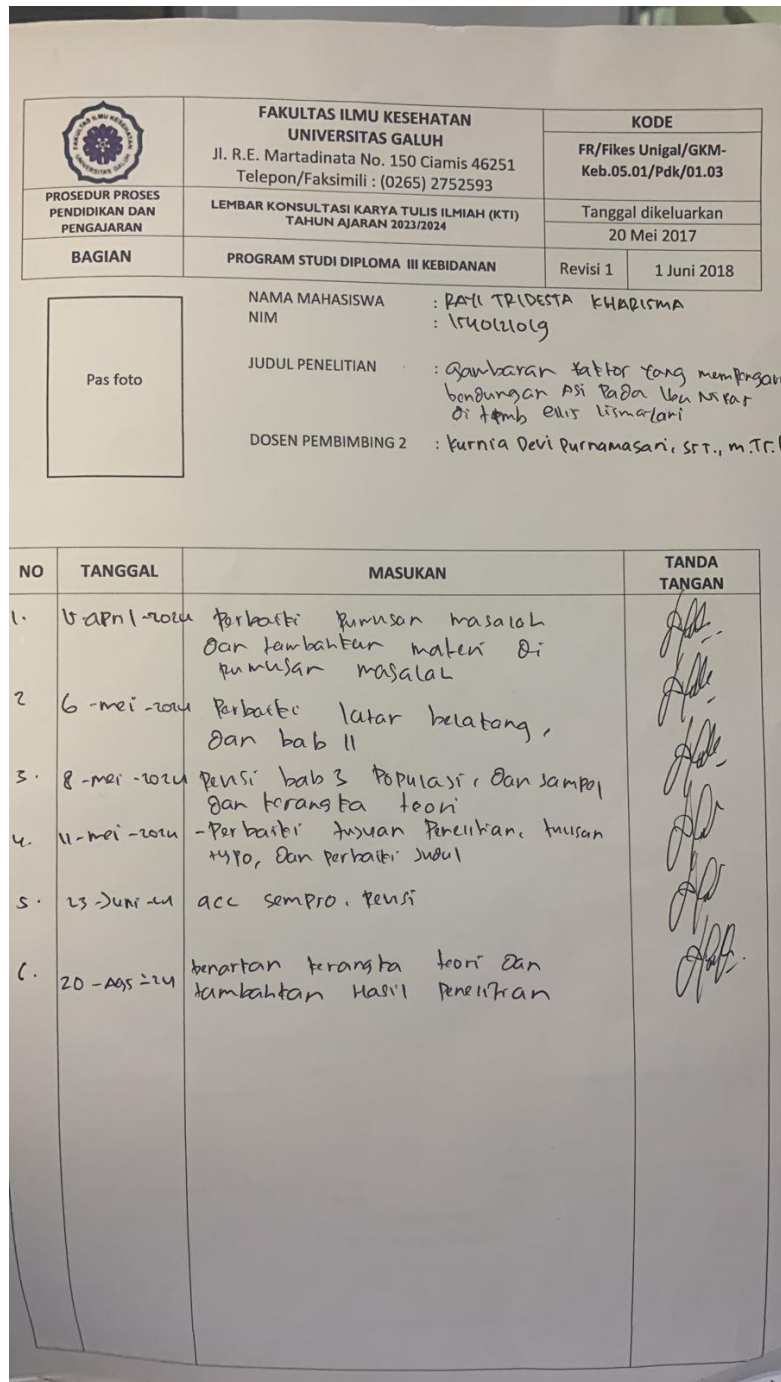 FAKULTAS ILMU KESEHATAN
UNIVERSITAS GALUH
Jl. R.E. Martadinata No. 150 Ciamis 46251
Telepon/Faksimili : (0265) 2752593
KODE
FR/Fikes Unigal/GKM-
Keb.05.01/Pdk/01.03
PROSEDUR PROSES
PENDIDIKAN DAN
PENGAJARAN
LEMBAR KONSULTASI KARYA TULIS ILMIAH (KTI)
TAHUN AJARAN 2023/2024
Tanggal dikeluarkan
20 Mei 2017
BAGIAN
PROGRAM STUDI DIPLOMA III KEBIDANAN
Revisi 1
1 Juni 2018
Pas foto
NAMA MAHASISWA : RAYI TRIDESTA KHARISMA
NIM :
JUDUL PENELITIAN : Gambaran faktor yang mempengaru
bendungan Asi Pada Ibu Nifas
di tpmb ellis lismalari
DOSEN PEMBIMBING 2 : Kurnia Devi Purnamasari, SST., m.Tr.
NO TANGGAL MASUKAN TANDA TANGAN
1. april-2024 Perbaiki Rumusan masalah
dan tambahkan materi di
rumusan masalah
2 6-mei-2024 Perbaiki latar belakang,
dan bab II
3. 8-mei-2024 Revisi bab 3 Populasi, dan sampel
dan kerangka teori
4. 11-mei-2024 -Perbaiki tujuan Penelitian, tulisan
typo, Dan perbaiki Judul
5. 23-Juni-24 acc sempro. Revisi
6. 20-Ags-24 benarkan kerangka teori dan
tambahkan Hasil Penelitian